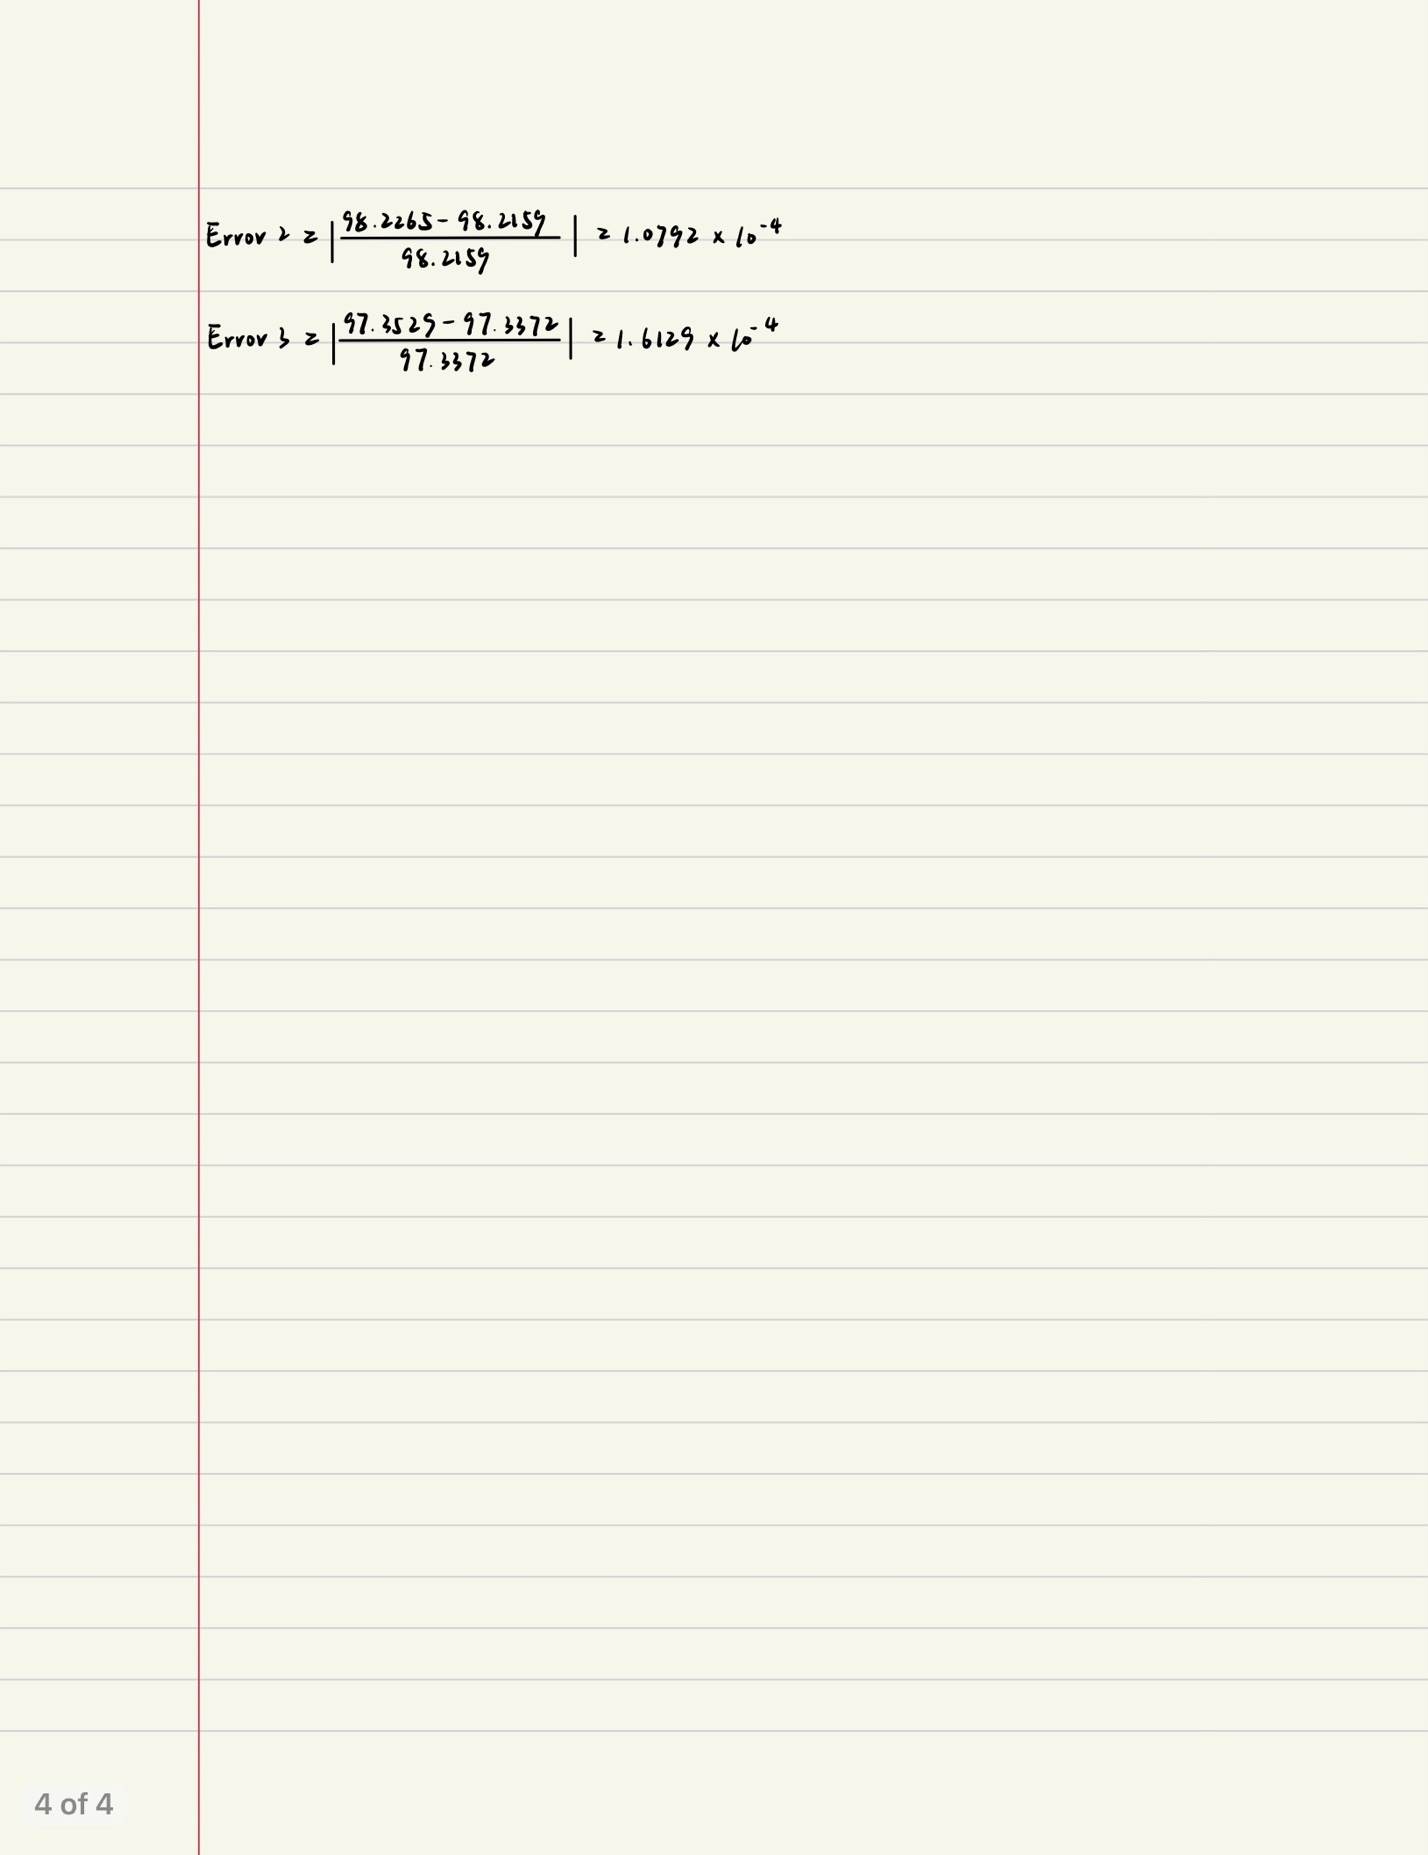 Error 2 = | (98.2265 - 98.2159) / 98.2159 | = 1.0792 × 10^-4
Error 3 = | (97.3529 - 97.3372) / 97.3372 | = 1.6129 × 10^-4
4 of 4